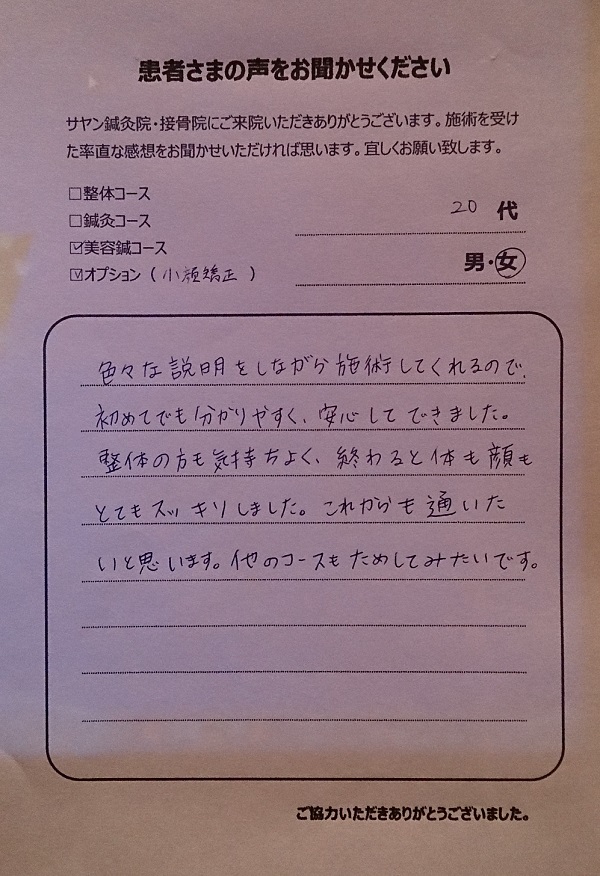 患者さまの声をお聞かせください
サヤン鍼灸院・接骨院にご来院いただきありがとうございます。施術を受け
た率直な感想をお聞かせいただければ思います。宜しくお願い致します。
□整体コース
□鍼灸コース
☑美容鍼コース
☑オプション（小顔矯正）
20 代
男・女
色々な説明をしながら施術してくれるので、
初めてでも分かりやすく、安心してできました。
整体の方も気持ちよく、終わると体も顔も
とてもスッキリしました。これからも通いた
いと思います。他のコースもためしてみたいです。
ご協力いただきありがとうございました。